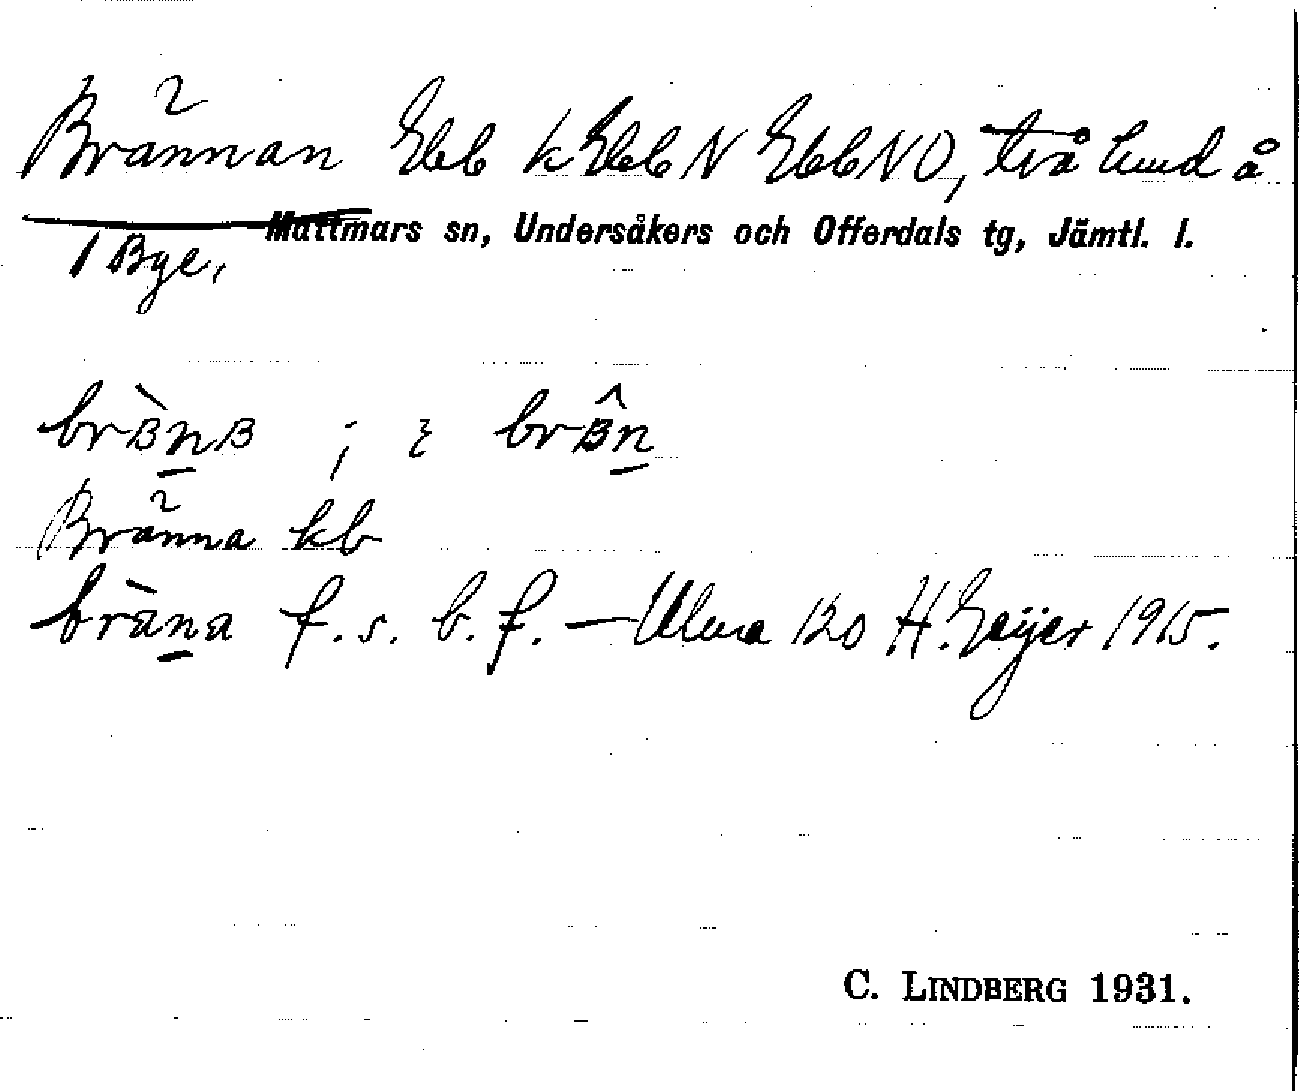 Brännan Ebb k Ebb N Ebb NO, två hus å
Mattmars sn, Undersåkers och Offerdals tg, Jämtl. l.
1 Bye,
brʙ̀n̲ʙ ; brʙ̂n̲
Bränna kb
bràn̲a f. s. b. f. — Ulma 120 H. Geijer 1915.
C. LINDBERG 1931.